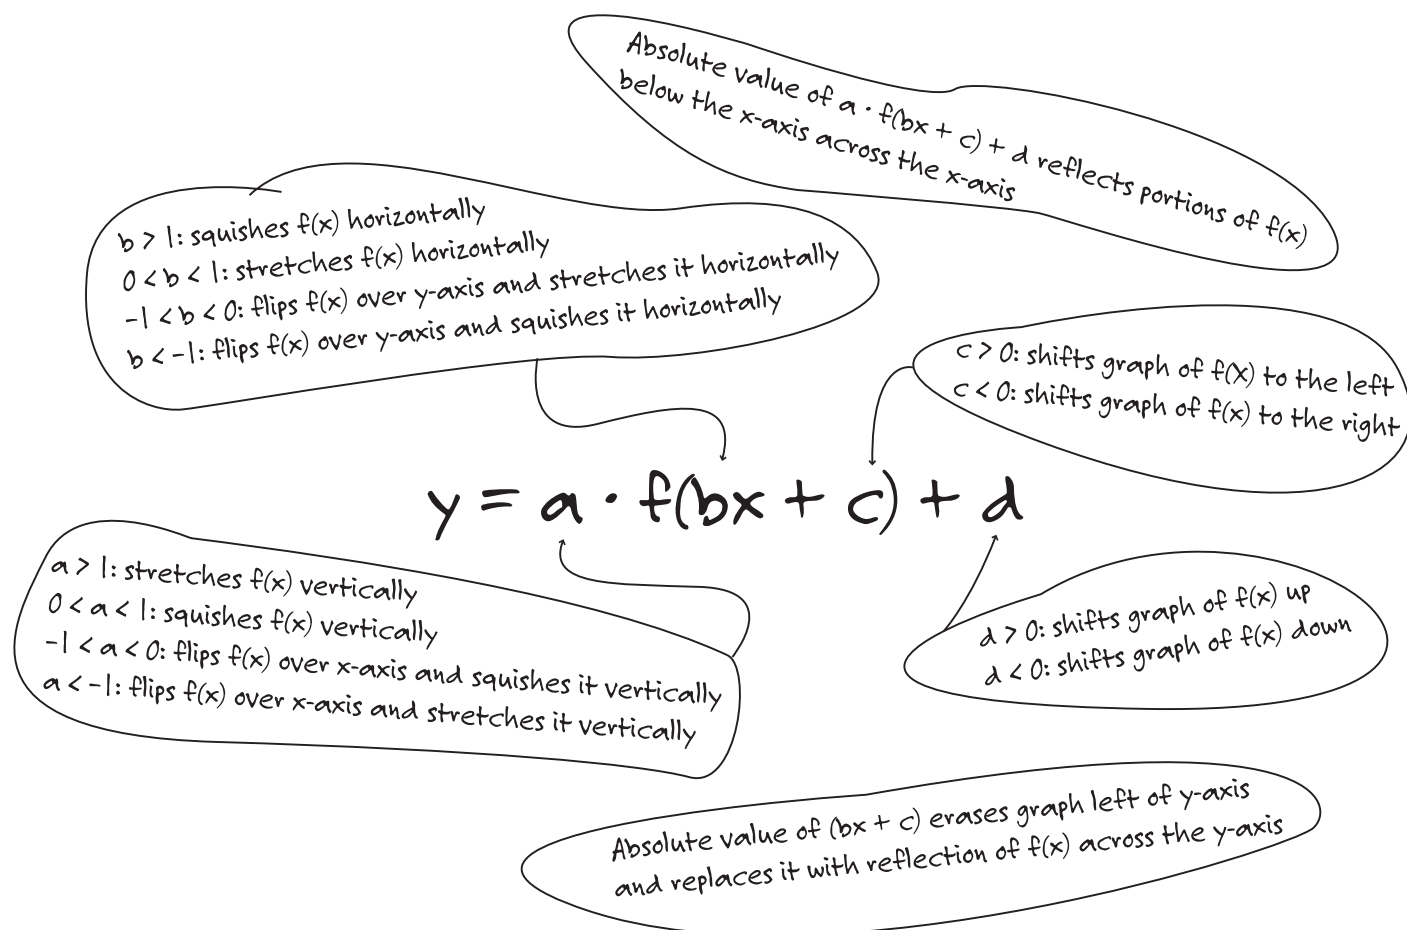 Absolute value of a · f(bx + c) + d reflects portions of f(x)
below the x-axis across the x-axis
b > 1: squishes f(x) horizontally
0 < b < 1: stretches f(x) horizontally
-1 < b < 0: flips f(x) over y-axis and stretches it horizontally
b < -1: flips f(x) over y-axis and squishes it horizontally
c > 0: shifts graph of f(x) to the left
c < 0: shifts graph of f(x) to the right
y = a · f(bx + c) + d
a > 1: stretches f(x) vertically
0 < a < 1: squishes f(x) vertically
-1 < a < 0: flips f(x) over x-axis and squishes it vertically
a < -1: flips f(x) over x-axis and stretches it vertically
d > 0: shifts graph of f(x) up
d < 0: shifts graph of f(x) down
Absolute value of (bx + c) erases graph left of y-axis
and replaces it with reflection of f(x) across the y-axis